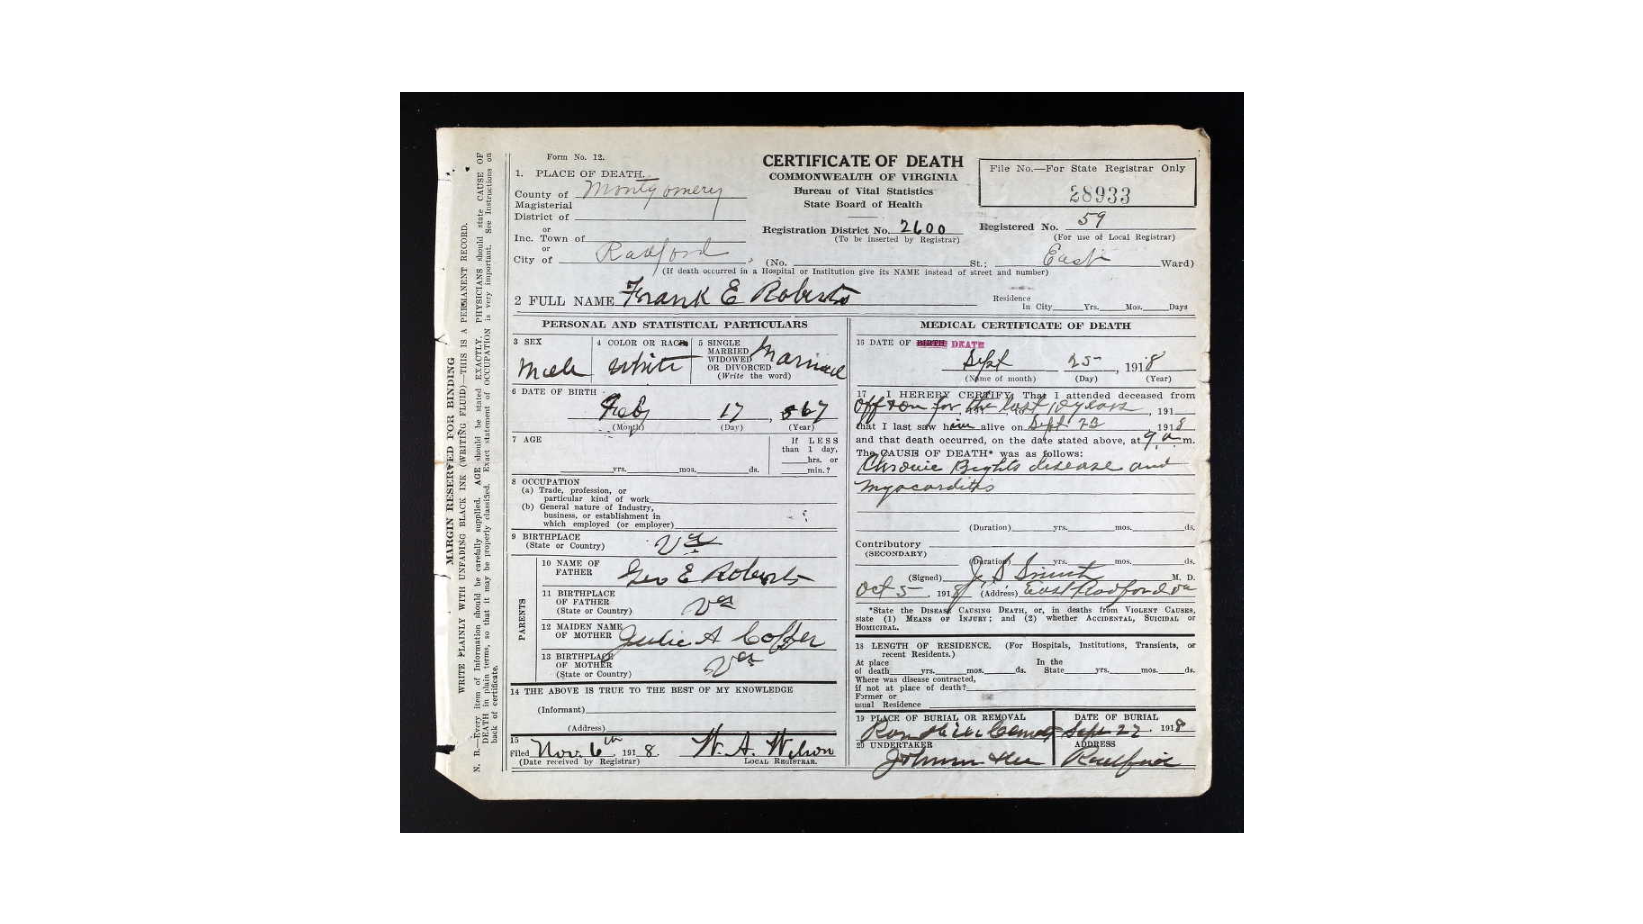 Form No. 12.
CERTIFICATE OF DEATH
COMMONWEALTH OF VIRGINIA
Bureau of Vital Statistics
State Board of Health
File No.—For State Registrar Only
28933
1. PLACE OF DEATH.
County of Montgomery
Magisterial
District of
or
Inc. Town of
or
City of Radford
Registration District No. 2600
(To be inserted by Registrar)
Registered No. 59
(For use of Local Registrar)
(No. St.; East Ward)
(If death occurred in a Hospital or Institution give its NAME instead of street and number)
2 FULL NAME Frank E Roberts
Residence
In City Yrs. Mos. Days
PERSONAL AND STATISTICAL PARTICULARS
3 SEX
Male
4 COLOR OR RACE
White
5 SINGLE
MARRIED
WIDOWED
OR DIVORCED
(Write the word)
Married
6 DATE OF BIRTH
Feby 17, 867
(Month) (Day) (Year)
7 AGE
yrs. mos. ds.
If LESS
than 1 day,
hrs. or
min.?
8 OCCUPATION
(a) Trade, profession, or
particular kind of work
(b) General nature of Industry,
business, or establishment in
which employed (or employer)
9 BIRTHPLACE
(State or Country) Va
PARENTS
10 NAME OF
FATHER Geo E Roberts
11 BIRTHPLACE
OF FATHER
(State or Country) Va
12 MAIDEN NAME
OF MOTHER Julie A Coffer
13 BIRTHPLACE
OF MOTHER
(State or Country) Va
14 THE ABOVE IS TRUE TO THE BEST OF MY KNOWLEDGE
(Informant)
(Address)
15
Filed Nov. 6th 1918. W. A. Wilson
(Date received by Registrar) LOCAL REGISTRAR.
MEDICAL CERTIFICATE OF DEATH
16 DATE OF BIRTH DEATH
Sept 25, 1918
(Name of month) (Day) (Year)
17 I HEREBY CERTIFY, That I attended deceased from
off & on for the last 10 years, 191
that I last saw him alive on Sept 23, 1918
and that death occurred, on the date stated above, at 9 a m.
The CAUSE OF DEATH* was as follows:
Chronic Brights disease and
myocarditis
(Duration) yrs. mos. ds.
Contributory
(SECONDARY)
(Duration) yrs. mos. ds.
(Signed) M. D.
Oct 5 1918 (Address) East Radford Va
*State the DISEASE CAUSING DEATH, or, in deaths from VIOLENT CAUSES,
state (1) MEANS OF INJURY; and (2) whether ACCIDENTAL, SUICIDAL or
HOMICIDAL.
18 LENGTH OF RESIDENCE. (For Hospitals, Institutions, Transients, or
recent Residents.)
At place In the
of death yrs. mos. ds. State yrs. mos. ds.
Where was disease contracted,
if not at place of death?
Former or
usual Residence
19 PLACE OF BURIAL OR REMOVAL
DATE OF BURIAL
Sept 27, 1918
20 UNDERTAKER
ADDRESS
Radford
MARGIN RESERVED FOR BINDING
WRITE PLAINLY WITH UNFADING BLACK INK (WRITING FLUID)—THIS IS A PERMANENT RECORD.
N. B.—Every item of information should be carefully supplied. AGE should be stated EXACTLY. PHYSICIANS should state CAUSE OF
DEATH in plain terms, so that it may be properly classified. Exact statement of OCCUPATION is very important. See Instructions on
back of certificate.